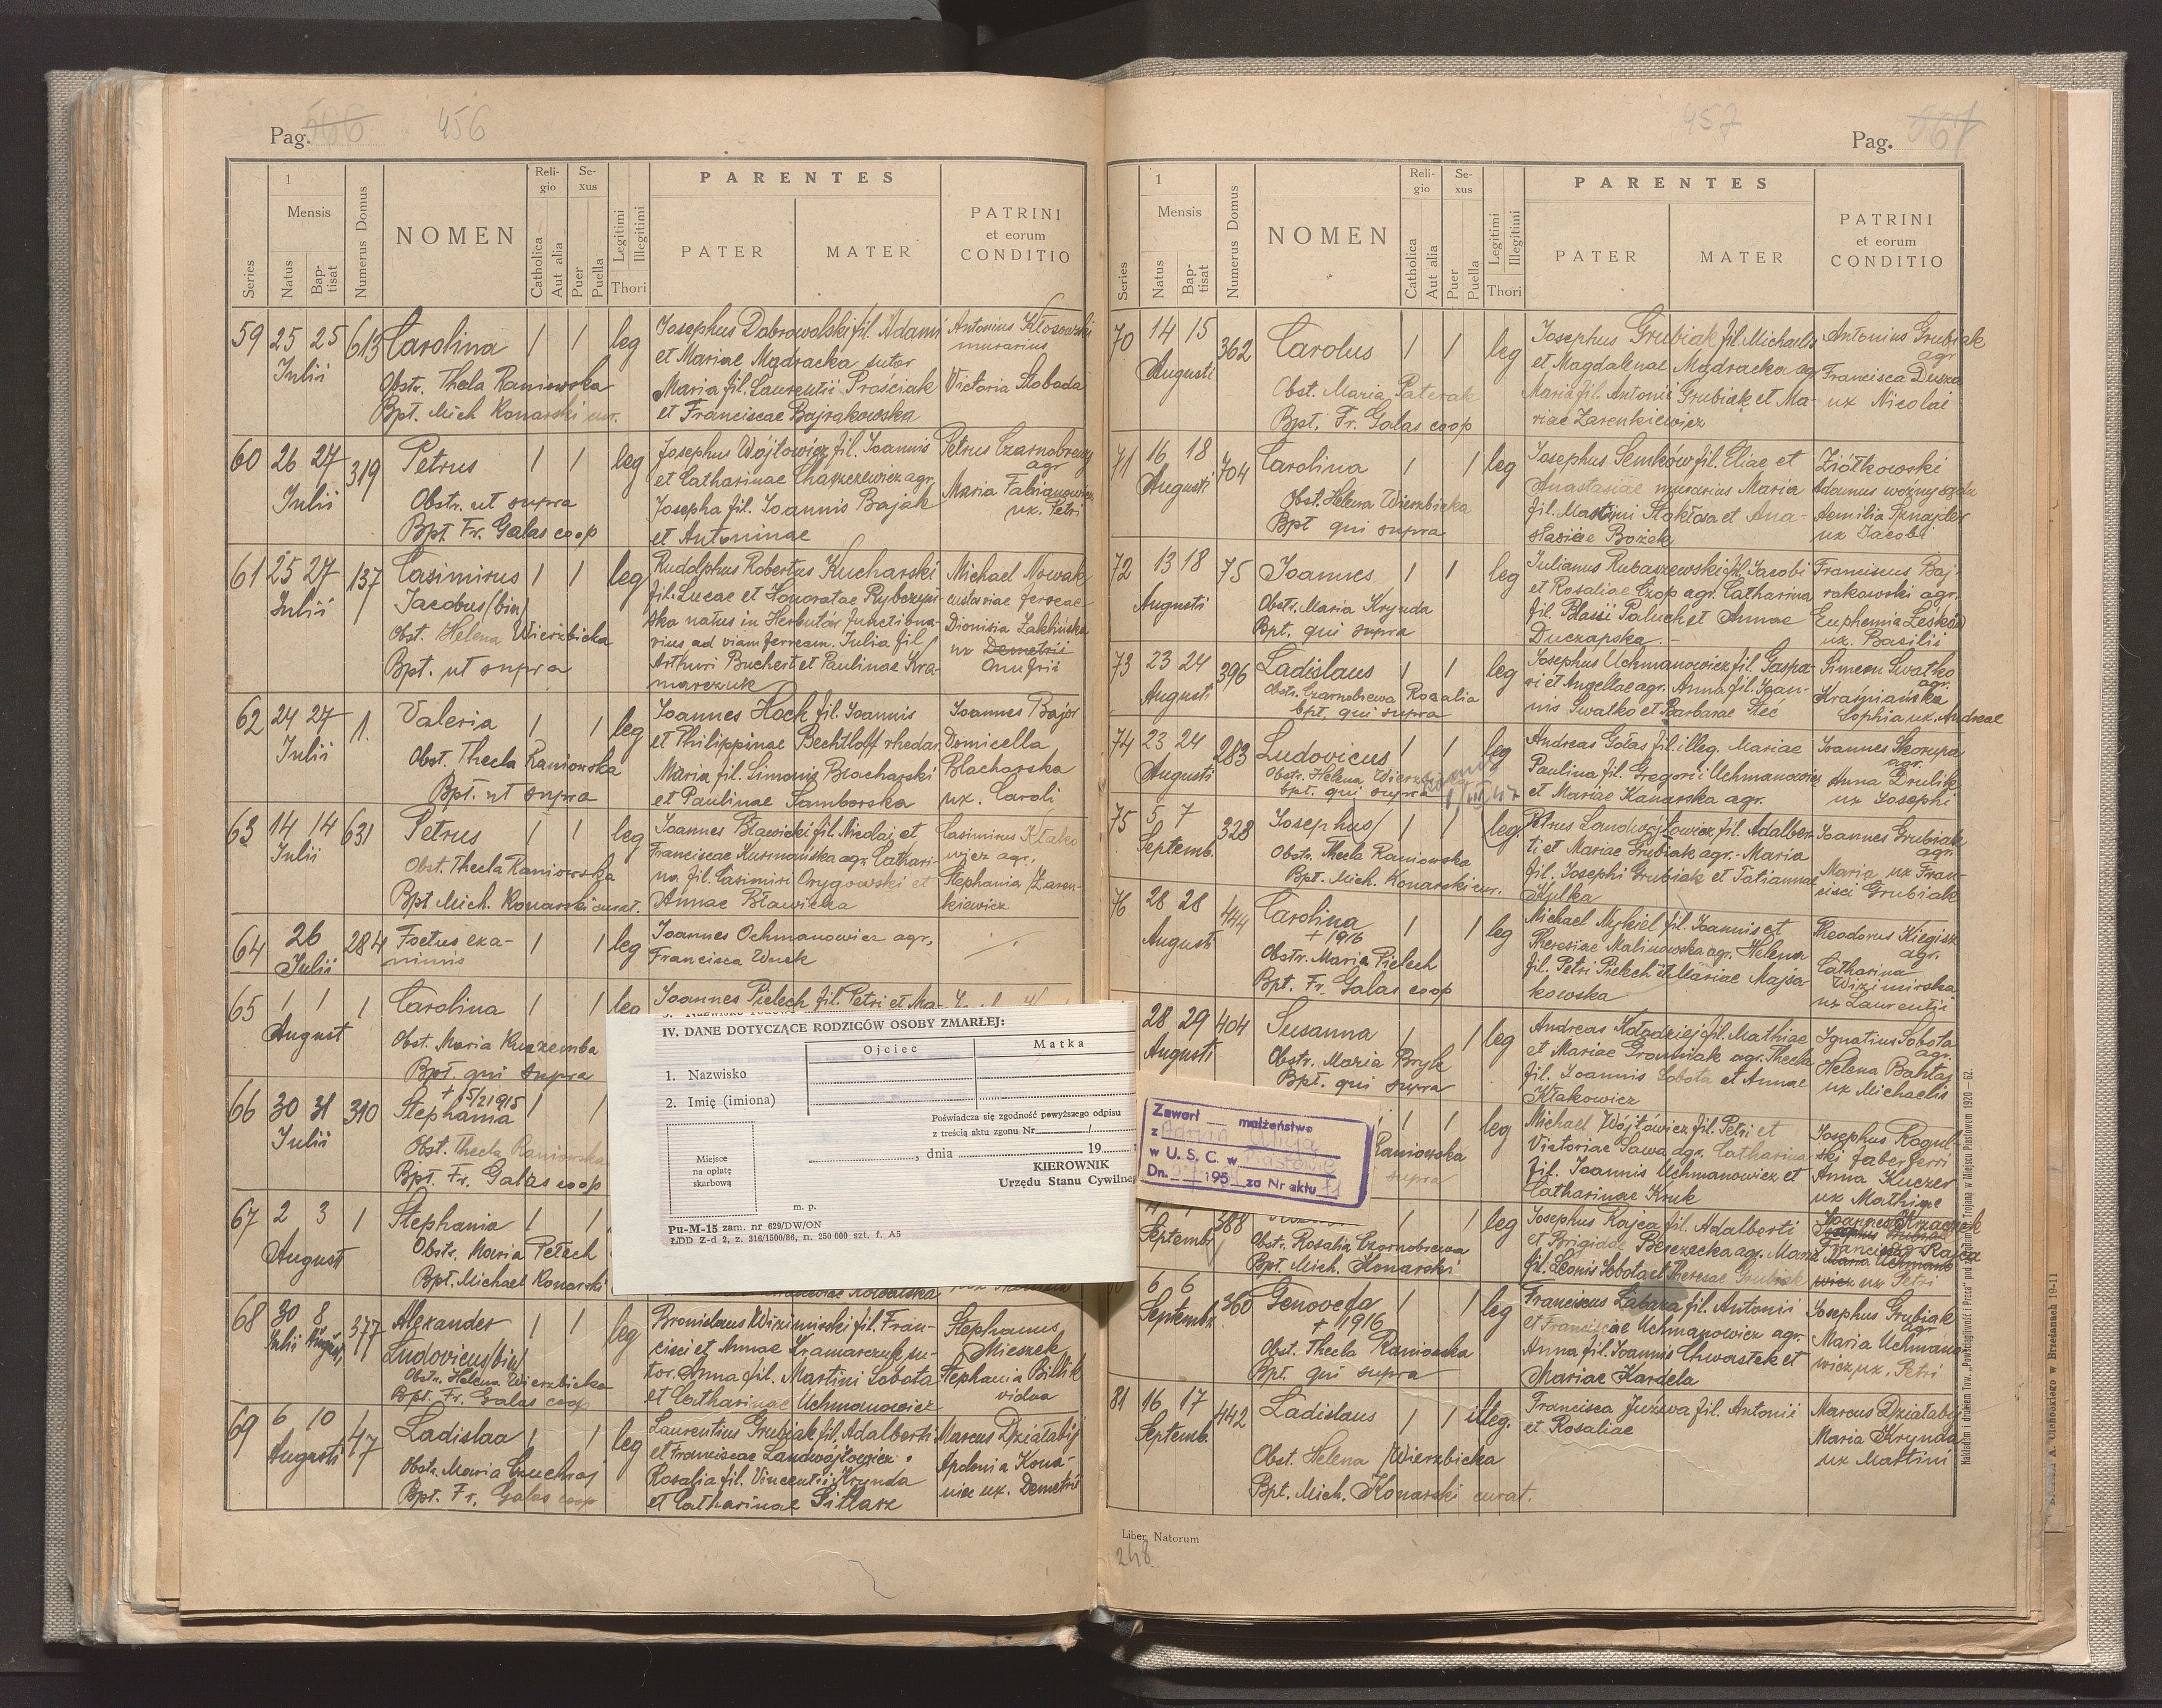 Pag. 566 456
Series
1
Mensis
Natus
Baptisat
Numerus Domus
NOMEN
Religio
Catholica
Aut alia
Sexus
Puer
Puella
Legitimi
Illegitimi
Thori
PARENTES
PATER
MATER
PATRINI
et eorum
CONDITIO
59 25 25 613 Carolina 1 1 leg Josephus Dobrowolski fil. Adami Antonius Kłosowski
Julii et Mariae Mądracka sutor murarius
Obstr. Thecla Raniowska Maria fil. Laurentii Prościak Victoria Słoboda
Bpt. Mich Konarski cur. et Franciscae Bajrakowska
60 26 27 319 Petrus 1 1 leg Josephus Wójtowicz fil. Joannis Petrus Czarnobrewy
Julii et Catharinae Chaszczewicz agr. agr
Obstr. ut supra Josepha fil. Joannis Bajak Maria Fabianowicz
Bpt. Fr. Galas coop et Antoninae ux. Petri
61 25 27 137 Casimirus 1 1 leg Rudolphus Robertus Kucharski Michael Nowak
Julii Jacobus (bin) fil. Lucae et Honoratae Rybczyń- custos viae ferreae
Obst. Helena Wierzbicka ska natus in Herbutów functiona- Dionisia
Bpt. ut supra rius ad viam ferream. Julia fil. ux Demetrii
Arthuri Buchert et Paulinae Kra- Onufrii
marczuk
62 24 27 1. Valeria 1 1 leg Joannes Hock fil. Joannis Joannes Bajor
Julii et Philippinae Bechtloff rhedar Domicella
Obst. Thecla Raniowska Maria fil. Simonis Blacharski Blacharska
Bpt. ut supra et Paulinae Samborska ux. Caroli
63 14 14 631 Petrus 1 1 leg Joannes Bławicki fil. Nicolai et Casimirus Kłako
Julii Franciscae agr. Cathari- wicz agr.
Obst. Thecla Raniowska na fil. Casimiri Orygowski et Stephania Zaren-
Bpt Mich. Konarski curat. Annae Bławicka kiewicz
64 26 284 Foetus exa- 1 1 leg Joannes Ochmanowicz agr.
Julii nimis Francisca Wnek
65 1 1 1 Carolina 1 1 leg Joannes Pielech fil. Petri et Ma-
August
Obst. Maria Kuczemba
Bpt. qui supra
66 30 31 310 + 15/2 1915
Stephania 1 1
Julii
Obst. Thecla Raniowska
Bpt. Fr. Galas coop
67 2 3 1 Stephania 1 1
Augusti
Obstr. Maria Pełech
Bpt. Michael Konarski
Kowalska
68 30 8 377 Alexander 1 1 leg Bronislaus Wizimirski fil. Fran- Stephanus
Julii August. Ludovicus (bin) cisci et Annae Kramarczuk su- Mieszek
Obstr. Helena Wierzbicka tor. Anna fil. Martini Sobota Stephania Billik
Bpt. Fr. Galas coop et Catharinae Uchmanowicz vidua
69 6 10 47 Ladislaa 1 1 leg Laurentius Grubiak fil. Adalberti Marcus Działabij
Augusti et Franciscae Landwójtowicz. Apolonia Kona-
Obstr. Maria Czuchraj Rosalia fil. Vincentii Krynda ux. Demetrii
Bpt. Fr. Galas coop et Catharinae Sitlarz
IV. DANE DOTYCZĄCE RODZICÓW OSOBY ZMARŁEJ:
Ojciec
Matka
1. Nazwisko
2. Imię (imiona)
Poświadcza się zgodność powyższego odpisu
z treścią aktu zgonu Nr /
, dnia 19
Miejsce
na opłatę
skarbową
KIEROWNIK
Urzędu Stanu Cywilneg
m. p.
Pu-M-15 zam. nr 629/DW/ON
ŁDD Z-d 2, z. 316/1500/86, n. 250 000 szt. f. A5
457 Pag. 567
Series
1
Mensis
Natus
Baptisat
Numerus Domus
NOMEN
Religio
Catholica
Aut alia
Sexus
Puer
Puella
Legitimi
Illegitimi
Thori
PARENTES
PATER
MATER
PATRINI
et eorum
CONDITIO
70 14 15 362 Carolus 1 1 leg Josephus Grubiak fil. Michaelis Antonius Grubiak
Augusti et Magdalenae Mądracka agr agr
Obst. Maria Paterak Maria fil. Antonii Grubiak et Ma- Francisca Duszo
Bpt. Fr. Galas coop riae Zarenkiewicz ux Nicolai
71 16 18 704 Carolina 1 1 leg Josephus Semków fil. Eliae et Ziółkowski
Augusti Anastasiae murarius Maria Adamus woźny sądu
Obst. Helena Wierzbicka fil. Martini Stokłosa et Ana- Aemilia Sznajder
Bpt qui supra stasiae Bożek ux Jacobi
72 13 18 75 Joannes 1 1 leg Julianus Rubaszewski fil. Jacobi Franciscus Baj-
Augusti et Rosaliae Czop agr. Catharina rakowski agr.
Obstr. Maria Krynda fil. Blasii Paluch et Annae Euphemia Leśków
Bpt. qui supra Duczapska.- ux. Basilii
73 23 24 396 Ladislaus 1 1 leg Josephus Uchmanowicz fil. Gaspa- Simeon Swatko
Augusti ri et Angellae agr. Anna fil. Joan- agr.
Obstr. Czarnobrewa Rozalia nis Swatko et Barbarae Steć Kraśniańska
bpt. qui supra Sophia ux. Andreae
74 23 24 283 Ludovicus 1 1 leg Andreas Gołas fil. illeg. Mariae Joannes Skorupa
Augusti Paulina fil. Gregorii Uchmanowicz agr.
Obstr. Helena Wierzbicka et Mariae Kanarska agr. Anna Drulik
bpt. qui supra ux Josephi
75 5 7 328 Josephus 1 1 leg. Petrus Landwójtowicz fil. Adalber- Joannes Grubiak
Septemb. ti et Mariae Grubiak agr.- Maria agr.
Obstr. Thecla Raniowska fil. Josephi Grubiak et Tatiannae Maria ux Fran-
Bpt. Mich. Konarski cur. Kulka cisci Grubiak
76 28 28 444 Carolina 1 1 leg Michael Mykiel fil. Joannis et Theodorus Kiegisz
Augusti + 1916 Theresiae Malinowska agr. Helena agr.
Obstr. Maria Pielech fil. Petri Pielech et Mariae Majda Catharina
Bpt. Fr. Galas coop kowska Wizimirska
ux Laurentii
28 29 404 Susanna 1 1 leg Andreas Kołodziej fil. Mathiae Ignatius Sobota
Augusti et Mariae agr. Thecla agr.
Obstr. Maria Bryk fil. Joannis Sobota et Annae Helena Bahtaj
Bpt. qui supra Kłakowicz ux Michaelis
1 1 leg Michael Wójtówicz fil. Petri et Josephus Rogul-
Raniowska Victoriae Sawa agr. Catharina ski faber ferri
supra fil. Joannis Uchmanowicz et Anna Kuczer
Catharinae Kruk ux Mathiae
Septembr 388 1 1 leg Josephus Rajca fil. Adalberti
Obst. Rosalia Czarnobrewa et Brigidae Berezecka agr. Maria Francisca Rajca
Bpt. Mich. Konarski fil. Leonis Sobota et Theresae Grubiak ux Petri
6 6 360 Genovefa 1 1 leg Franciscus Zabaza fil. Antonii Josephus Grubiak
Septembr. + 1916 et Franciscae Uchmanowicz agr. agr
Obst. Thecla Raniowska Anna fil. Joannis Chwostek et Maria Uchmano
Bpt. qui supra Mariae Kardela wicz ux. Petri
81 16 17 442 Ladislaus 1 1 illeg. Francisca Juźwa fil. Antonii Marcus Działabij
Septemb. et Rosaliae Maria Krynda
Obst. Helena Wierzbicka ux Martini
Bpt. Mich. Konarski curat.
Zawarł małżeństwo
z Alicją
w U. S. C. w Piastowie
Dn. 195 za Nr aktu 71
Liber Natorum
248